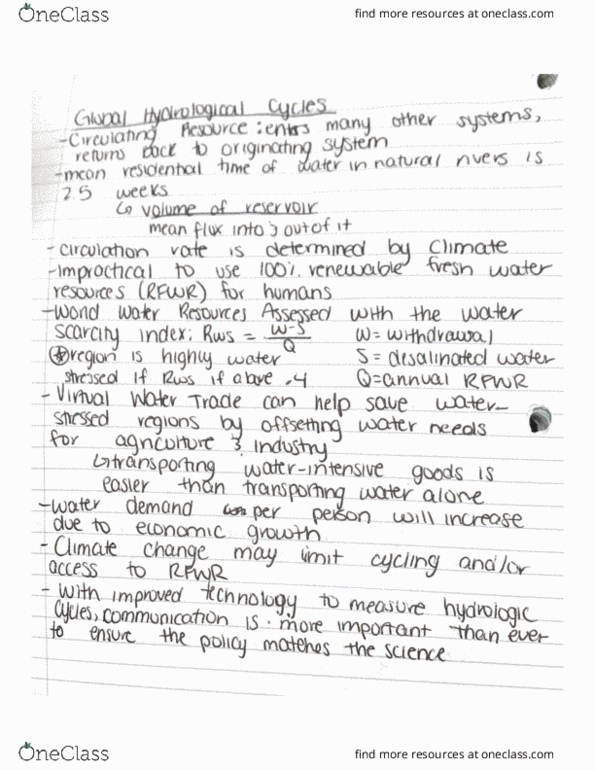 OneClass
find more resources at oneclass.com
Global Hydrological Cycles
-Circulating Resource: enters many other systems,
returns back to originating system
-mean residential time of water in natural rivers is
2.5 weeks
↳ volume of reservoir
mean flux into & out of it
- circulation rate is determined by climate
-Impractical to use 100% renewable fresh water
resources (RFWR) for humans
-World Water Resources Assessed with the water
scarcity index: Rws = W-S/Q W= withdrawal
⍟region is highly water S= desalinated water
stressed if Rws if above .4 Q=annual RFWR
- Virtual Water Trade can help save water-
stressed regions by offsetting water needs
for agriculture & industry
↳transporting water-intensive goods is
easier than transporting water alone
-water demand per person will increase
due to economic growth
- Climate change may limit cycling and/or
access to RFWR
- With improved technology to measure hydrologic
cycles, communication is more important than ever
to ensure the policy matches the science
OneClass
find more resources at oneclass.com